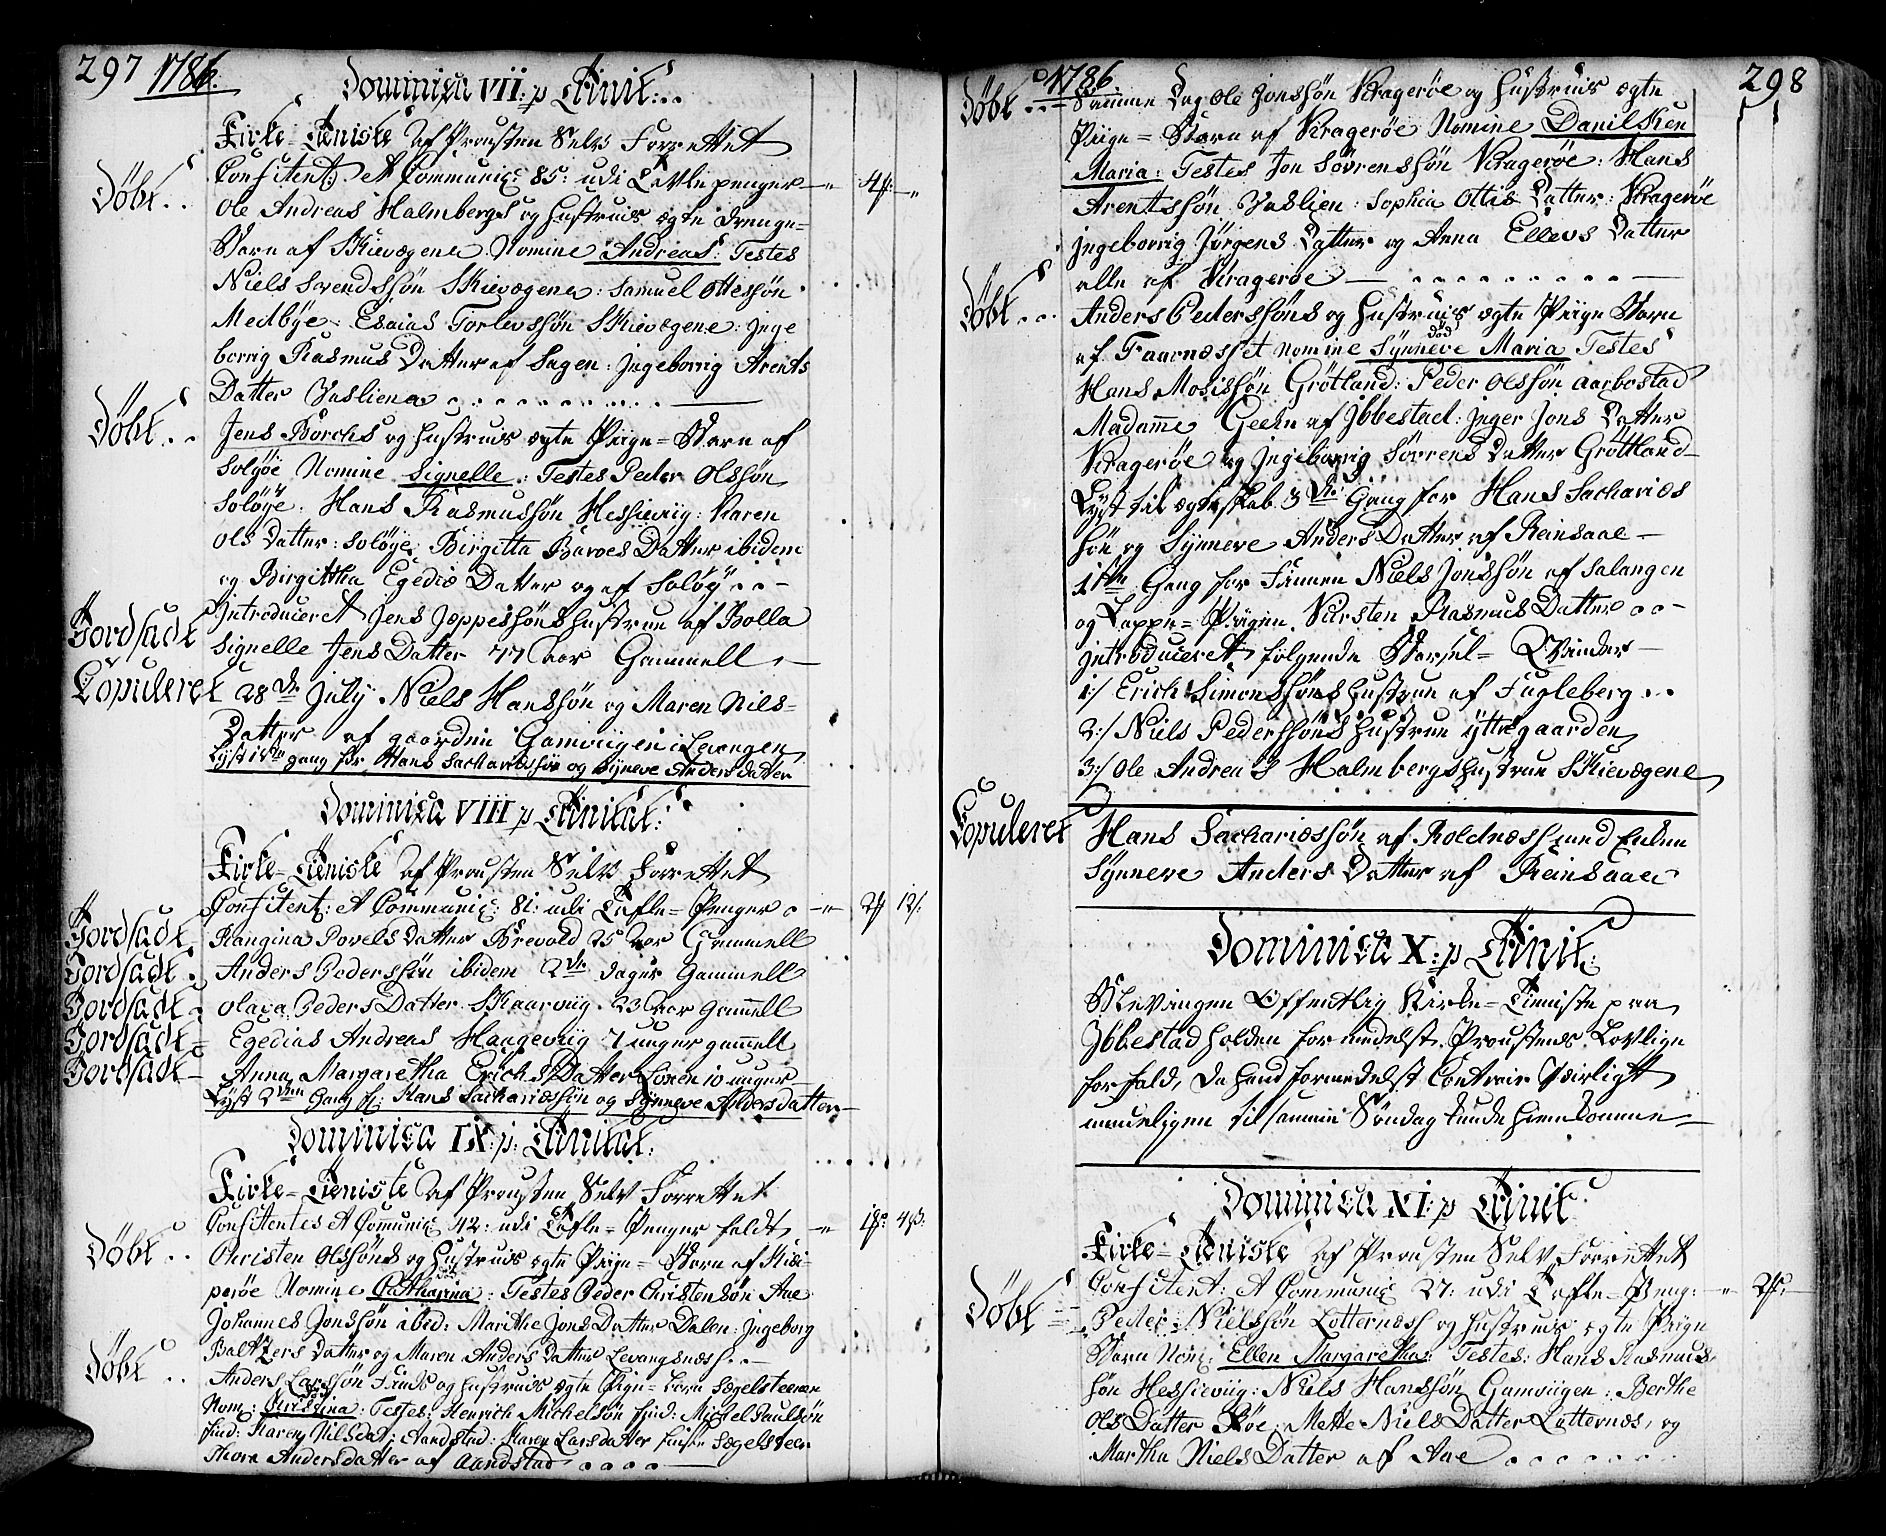 297 1786.
Dominica VII: p Trinit:
Kirke-Tieniste af Prousten Selv Forrettet
Confitent: et Communic: 85: udi Tavle penger
Døbt.. Ole Andreas Halmbergs og Hustrues ægte Drenge-
Barn af Skievægene. Nomine Andreas: Testes
Niels Svendssøn Skievægene: Samuel Ottessøn
Medbye. Esaias Torlevssøn Skievægene: Inge
borrig Rasmus Datter af Sagen: Ingeborrig Arents
Datter Vasliena
Døbt.. Jens Borchs og Hustrues ægte Piige-Barn af
Soløye Nomine Signelle: Testes Peder Olssøn
Soløye: Hans Rasmussøn Hessieviig: Karen
Ols Datter: Soløye: Birgitta Baroes Datter ibidem
og Birgittha Egediæ Datter og af Soløy
Introduceret Jens Jeppessøns Hustrue af Bolla
Jordsadt Signelle Jens Datter 77 aar Gammell
Copuleret 28de July. Niels Hanssøn og Maren Nils-
Datter af gaarden Gamviigen i Levangen
Lyst 1ste gang for Hans Sachariæssøn og Synneve Anders datter
Dominica VIII p Trinitat:
Kirke-Tieniste af Prousten Selv Forrettet
Confitent: et Communic: 81: udi Tafle-Penger 2 12
Jordsadt. Rangina Povels Datter Brevold 25 aar Gammell
Jordsadt. Anders Pederssøn ibidem 2de dager Gammell
Jordsadt. Olava Peders Datter Skaarviig. 23 aar Gamell
Jordsadt Egedius Andreas Hangeviig 7 uuger gamelt
Jordsadt Anna Margaretha Erichs Datter Loren 10 uuger
Lyst 2den Gang for Hans Sachariæssøn og Synneve Andersdatter
Dominica IX: p: Trinitat:
Kirke-Tieniste af Prousten Selv Forrettet
Confitentes et Comunic: 42: udi Tafle-Penger faldt
Døbt.. Christen Olssøns og Hustrues ægte Piige-Barn af
perøe Nomine Catharina: Testes Peder Christensøn Aae
Johannes Jonssøn ibid: Marithe Jons Datter Dalen: Ingeborg
Baltzers Datter og Maren Anders Datter Levangsnæss
Døbt.. Anders Larssøn Finds og Hustrues ægte Piige-Barn Sægelsteenen
Nom: Christina: Testes: Henrich Michelsøn find: Michel Paulsøn
find: Karen Nilsdat: Aandstad: Karen Larsdatter finsk Sægelsteen
Thore Andersdatter af Aandstad
1786. 298
Døbt.. Samme Dag Ole Jonssøn Kragerøe og Hustrues ægte
Piige-Barn af Kragerøe Nomine Danilken
Maria: Testes Jon Sövrenssøn Kragerøe: Hans
Arentssøn Vaslien: Sophia Ottis Datter: Kragerøe
Ingeborrig Jørgens Datter og Anna Ellevs Datter
alle af Kragerøe
Døbt.. Anders Pederssøns og Hustrues ægte Piige Barn
død
af Faarnæsset Nomine Synneve Maria Testes
Hans Mosissøn Grötland: Peder Olssøn Aarbostad
Madamme Geelm af Ibbestad: Inger Jons Datter
Kragerøe og Ingeborrig Sövrens Datter Gröttland
Lyst til ægteskab 3die Gang for Hans Sachariæs
søn og Synneve Anders Datter af Reinsaae
1ste Gang for Finnen Niels Jonssøn af Salangen
og Lappe-Piigen Kirsten Rasmus Datter
Introduceret følgende Barsel-Qvinder
1:/ Erich Simonssøns Hustrue af Fugleberg
2:/ Niels Pederssøns Hustrue yttregaarden
3:/ Ole Andreas Halmbergs Hustrue Skievægene
Copuleret Hans Sachariæssøn af Roldnæss med Enken
Synneve Anders Datter af Reinsaae
Dominica X: p Trinit:
Blev ingen Offentlig Kirke-Tieniste paa
Ibbestad holden formedelst Proustens Lovlige
forfald, da hand formedelst Contrair Væirligt
umueligen til samme Søndag kunde hiemkomme
Dominica XI: p Trinit
Kirke-Tieniste af Prousten Selv Forrettet
Confitent: et Communic 27: udi Tafle-Peng:
Døbt Peder Nielssøn Lotternæss og Hustrues ægte Piige
Barn Nom: Ellen Margaretha: Testes: Hans Rasmus
søn Hessieviig: Niels Hanssøn Gamviigen: Berthe
Ols Datter Røe: Mette Niels Datter Lotternæs, og
Martha Niels Datter af Aae